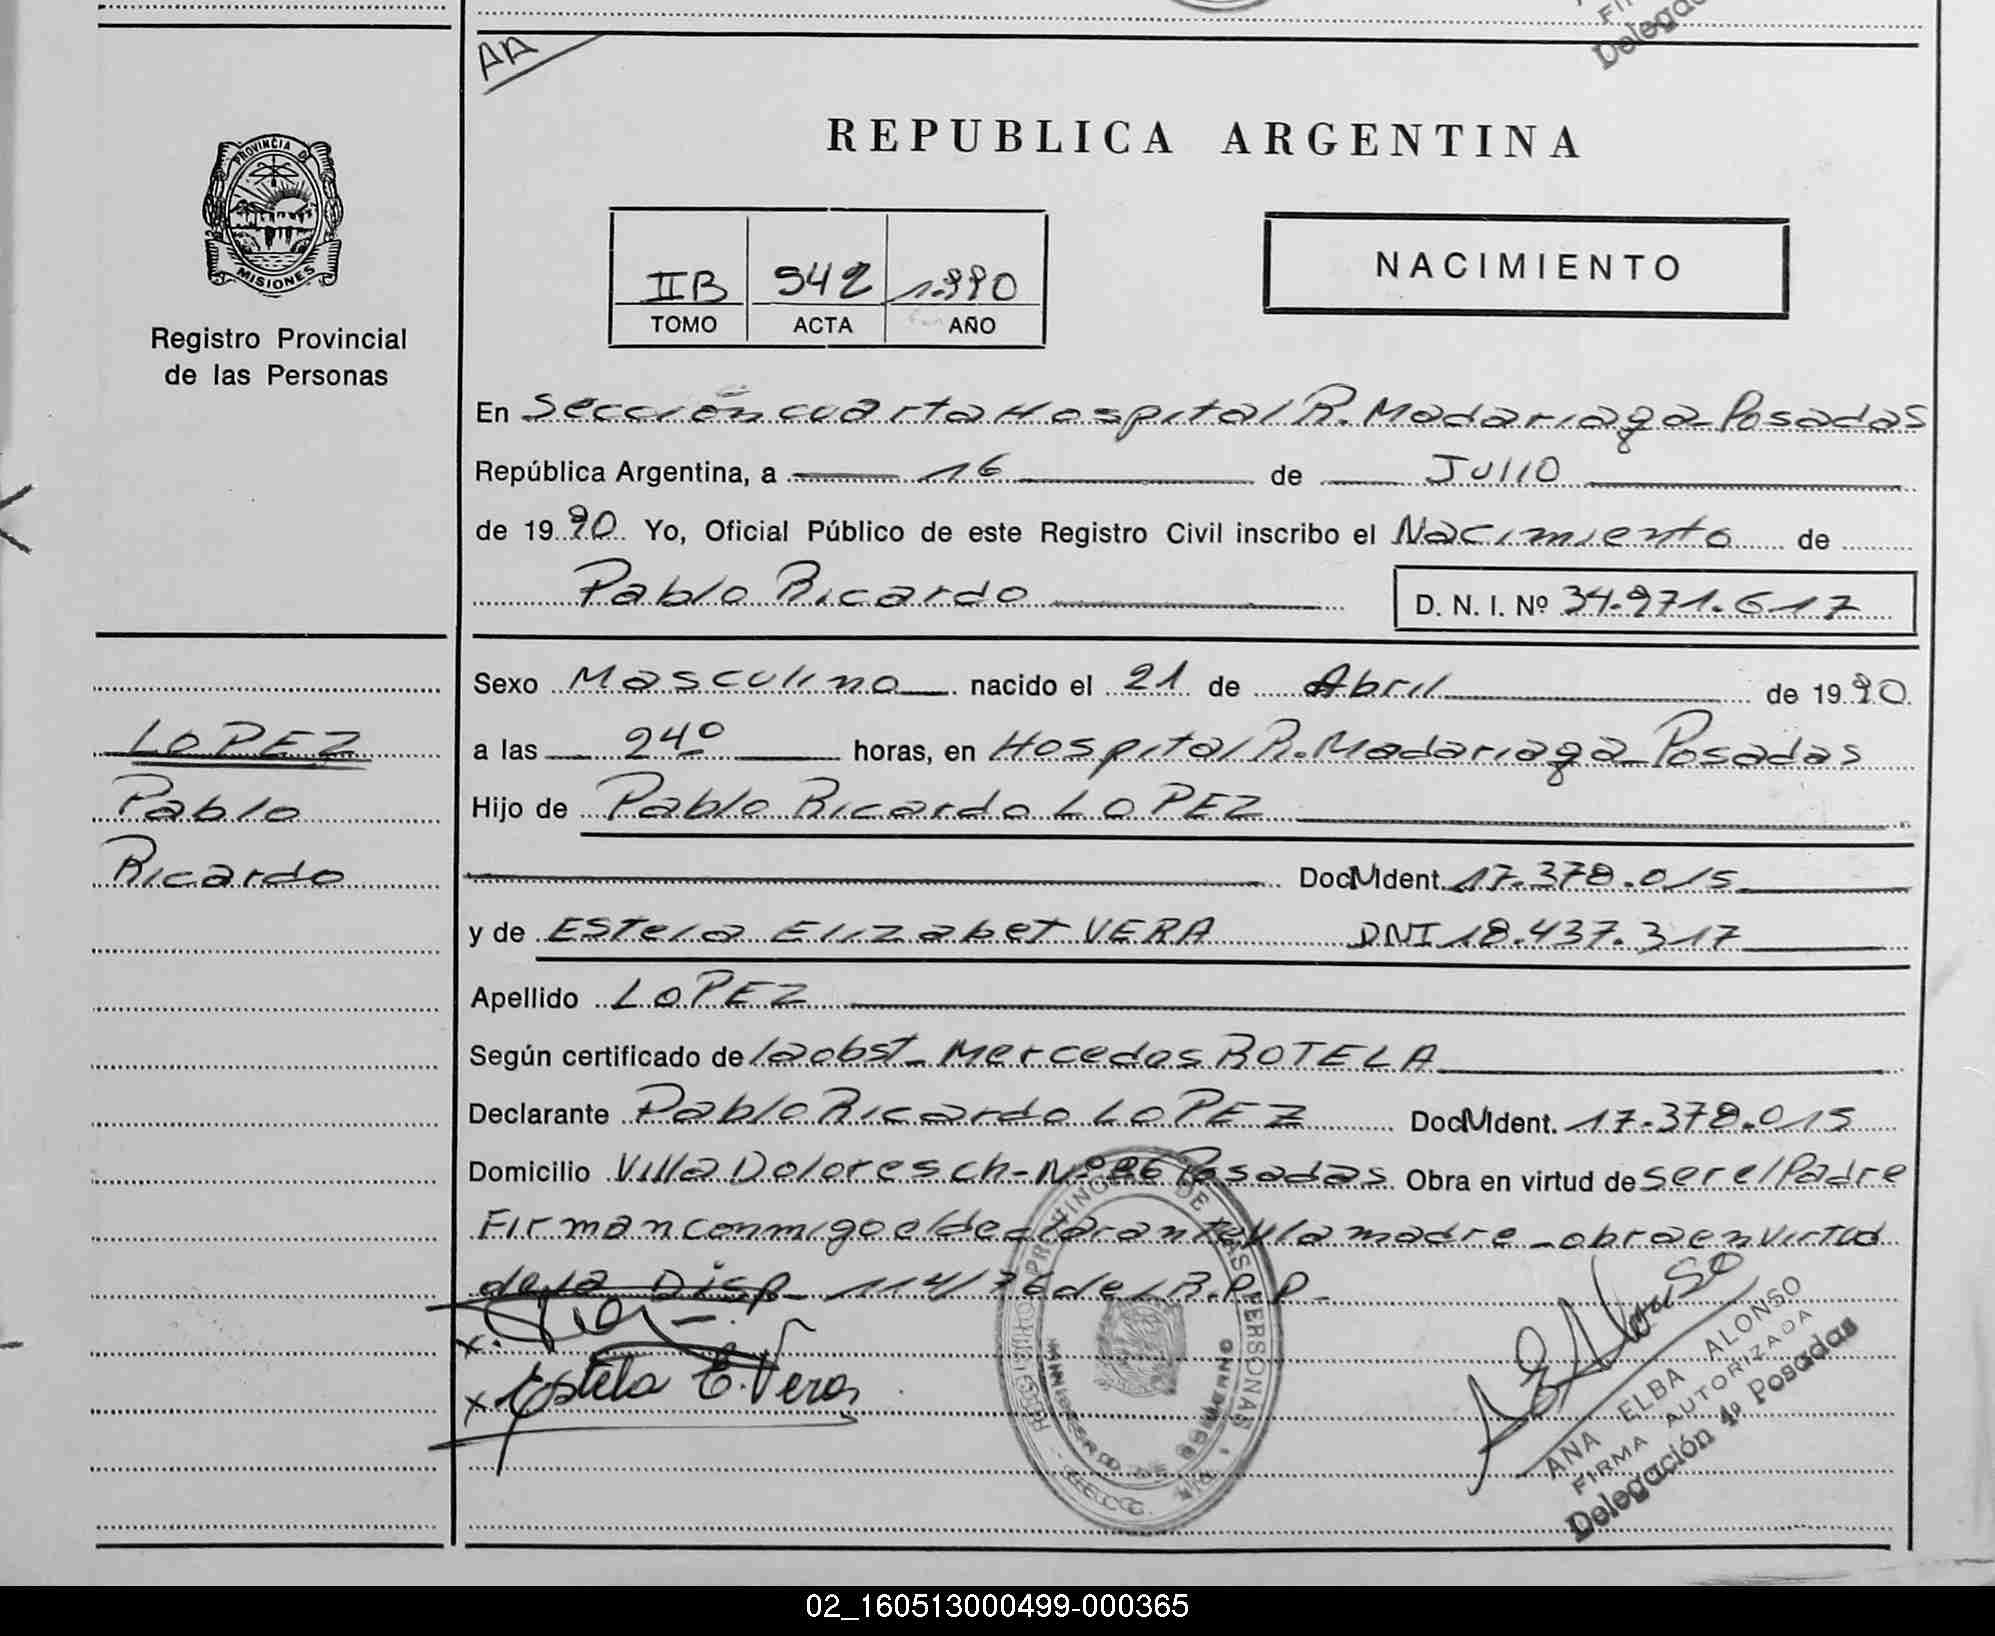 AA
PROVINCIA D
MISIONES
Registro Provincial
de las Personas
REPUBLICA ARGENTINA
IIB 542 1.990
TOMO ACTA AÑO
NACIMIENTO
En Sección cuarta Hospital R. Madariaga - Posadas
República Argentina, a 16 de Julio
de 1990 Yo, Oficial Público de este Registro Civil inscribo el Nacimiento de
Pablo Ricardo D. N. I. Nº 34.971.617
Sexo Masculino nacido el 21 de Abril de 1990
a las 24º horas, en Hospital R. Madariaga - Posadas
Hijo de Pablo Ricardo LOPEZ
Doc M Ident. 17.378.015
y de Estela Elizabet VERA DNI 18.437.317
Apellido LOPEZ
Según certificado de la obst- Mercedes ROTELA
Declarante Pablo Ricardo LOPEZ Doc M Ident. 17.378.015
Domicilio Villa Dolores ch- Nº 86 Posadas Obra en virtud de ser el Padre
Firman conmigo el declarante y la madre - obra en virtud
de la Disp- 114/76 del R.P.P-
x.
x Estela E. Vera
LOPEZ
Pablo
Ricardo
REGISTRO PROVINCIAL DE LAS PERSONAS
AEAlonso
ANA ELBA ALONSO
FIRMA AUTORIZADA
Delegación 4º Posadas
02_160513000499-000365